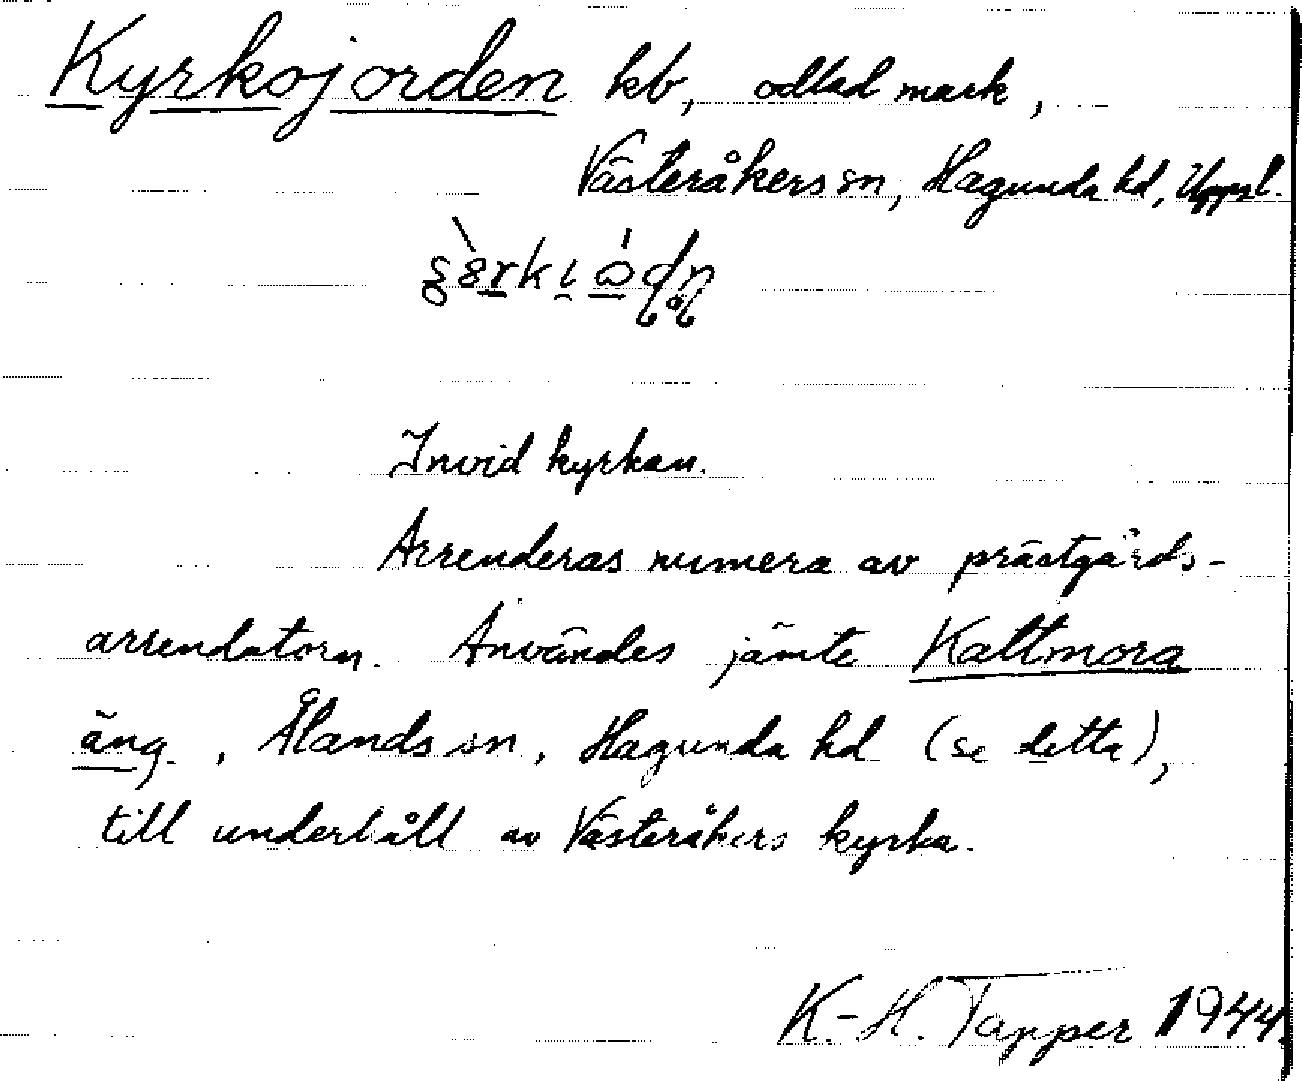 Kyrkojorden kb, odlad mark,
Västeråkers sn, Hagunda hd, Uppl.
Invid kyrkan.
Arrenderas numera av prästgårds-
arrendatorn. Användes jämte Kattmora
äng, Ålands sn, Hagunda hd (se detta),
till underhåll av Västeråkers kyrka.
K.-H. Tapper 1944.